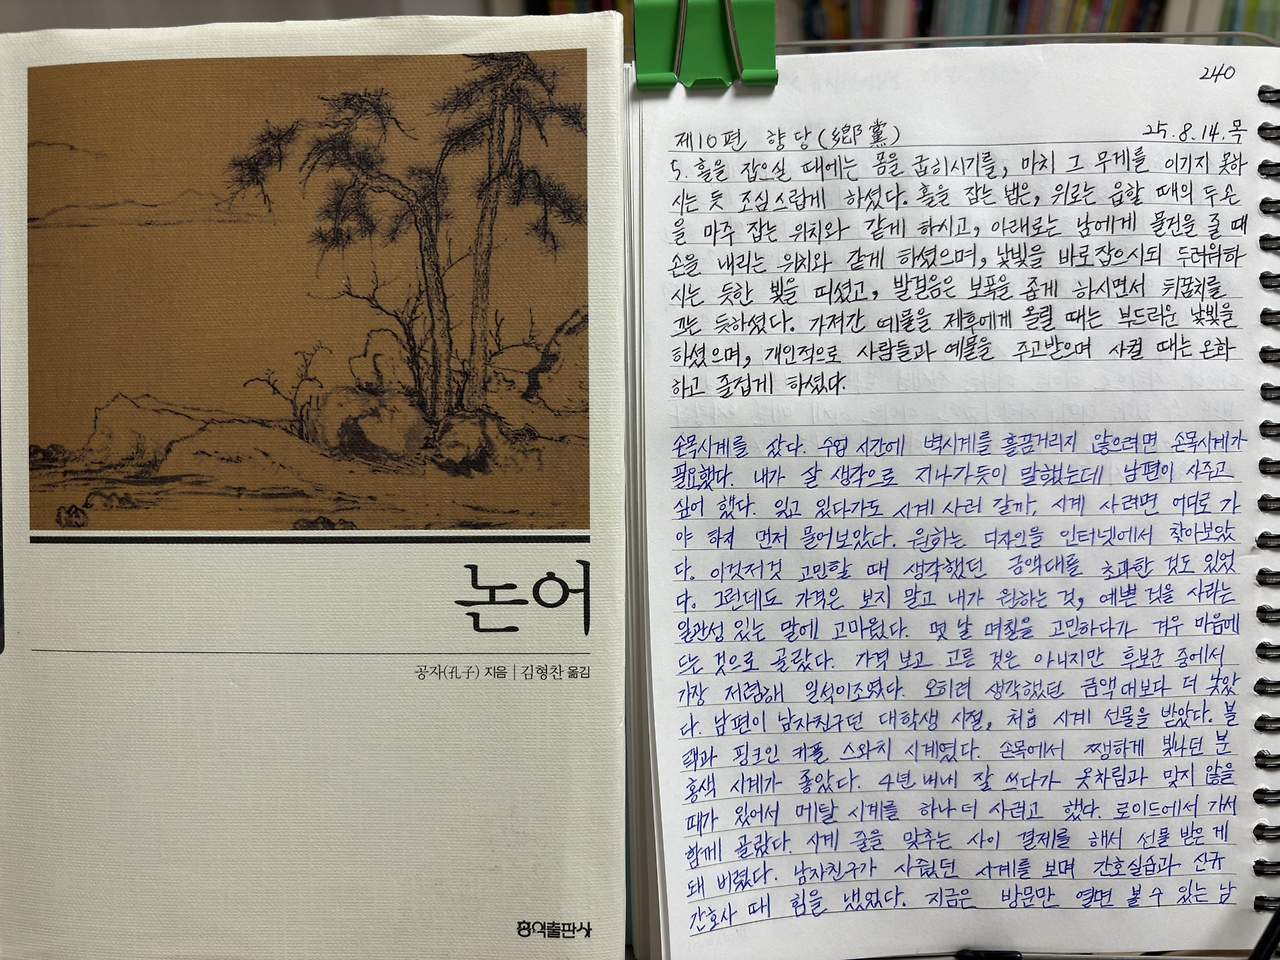 논어
공자(孔子) 지음 | 김형찬 옮김
홍익출판사
240
제10편 향당(鄕黨) 25.8.14.목
5. 홀을 잡으실 때에는 몸을 굽히시기를, 마치 그 무게를 이기지 못하
시는 듯 조심스럽게 하셨다. 홀을 잡는 법은, 위로는 읍할 때의 두 손
을 마주 잡는 위치와 같게 하시고, 아래로는 남에게 물건을 줄 때
손을 내리는 위치와 같게 하셨으며, 낯빛을 바로잡으시되 두려워하
시는 듯한 빛을 띠셨고, 발걸음은 보폭을 좁게 하시면서 뒤꿈치를
끄는 듯하셨다. 가져간 예물을 제후에게 올릴 때는 부드러운 낯빛을
하셨으며, 개인적으로 사람들과 예물을 주고받으며 사귈 때는 온화
하고 즐겁게 하셨다.
손목시계를 샀다. 수업 시간에 벽시계를 흘끔거리지 않으려면 손목시계가
필요했다. 내가 살 생각으로 지나가듯이 말했는데 남편이 사주고
싶어 했다. 잊고 있다가도 시계 사러 갈까, 시계 사려면 어디로 가
야 하지 먼저 물어보았다. 원하는 디자인을 인터넷에서 찾아보았
다. 이것저것 고민할 때 생각했던 금액대를 초과한 것도 있었
다. 그런데도 가격은 보지 말고 내가 원하는 것, 예쁜 것을 사라는
일관성 있는 말에 고마웠다. 몇 날 며칠을 고민하다가 겨우 마음에
드는 것으로 골랐다. 가격 보고 고른 것은 아니지만 후보군 중에서
가장 저렴해 일석이조였다. 오히려 생각했던 금액대보다 더 낮았
다. 남편이 남자친구던 대학생 시절, 처음 시계 선물을 받았다. 블
랙과 핑크인 커플 스와치 시계였다. 손목에서 쨍하게 빛나던 분
홍색 시계가 좋았다. 4년 내내 잘 쓰다가 옷차림과 맞지 않을
때가 있어서 메탈 시계를 하나 더 사려고 했다. 로이드에서 가서
함께 골랐다. 시계 줄을 맞추는 사이 결제를 해서 선물 받은 게
돼 버렸다. 남자친구가 사줬던 시계를 보며 간호실습과 신규
간호사 때 힘을 냈었다. 지금은 방문만 열면 볼 수 있는 남